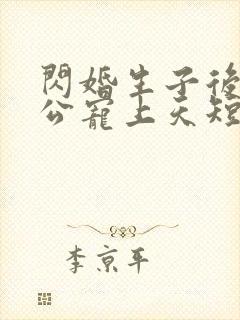 閃婚生子後
公寵上天短
李京平